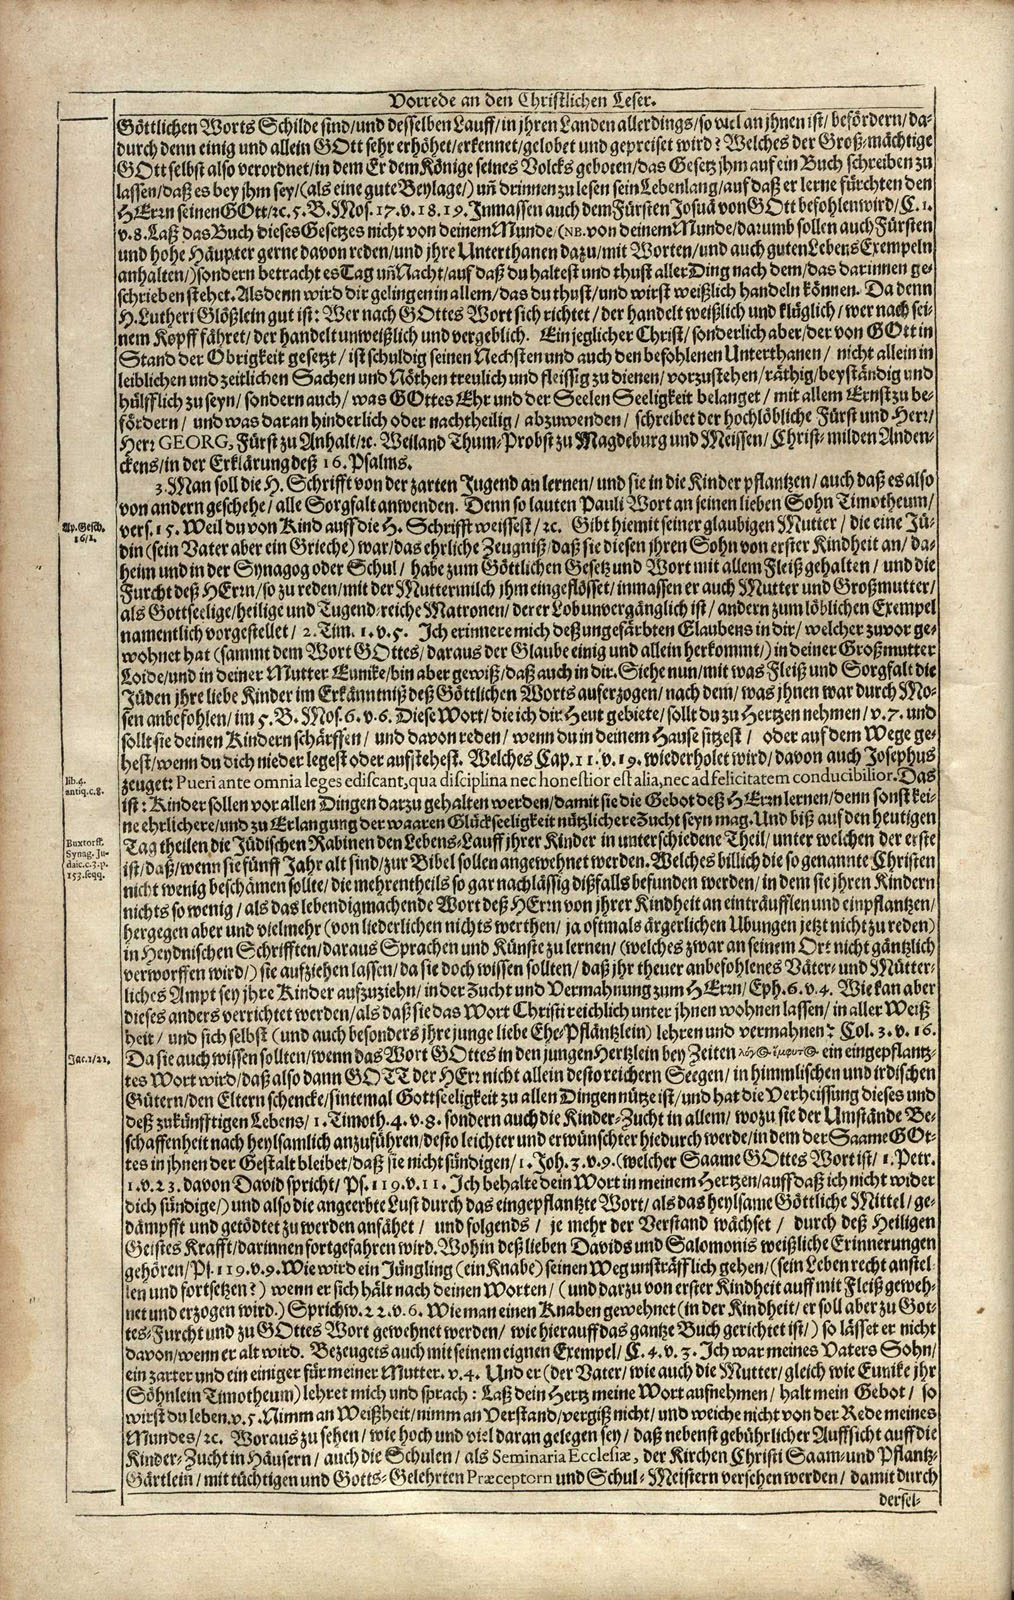 Vorrede an den Christlichen Leser.
Göttlichen Worts Schilde sind/und desselben Lauff/in jhren Landen allerdings/so viel an jhnen ist/ befördern/da-
durch denn einig und allein GOtt sehr erhöhet/erkennet/gelobet und gepreiset wird? Welches der Groß-mächtige
GOtt selbst also verordnet/in dem Er dem Könige seines Volcks geboten/das Gesetz jhm auf ein Buch schreiben zu
lassen/daß es bey jhm sey/(als eine gute Beylage/) uñ drinnen zu lesen sein Lebenlang/auf daß er lerne fürchten den
HErrn seinen GOtt/ꝛc. 5. B. Mos. 17. v. 18. 19. Inmassen auch dem Fürsten Josuä von GOtt befohlen wird/ C. 1.
v. 8. Laß das Buch dieses Gesetzes nicht von deinem Munde/ (NB. von deinem Munde/darumb sollen auch Fürsten
und hohe Häupter gerne davon reden/und jhre Unterthanen dazu/mit Worten/und auch guten Lebens Exempeln
anhalten/) sondern betracht es Tag uñ Nacht/auf daß du haltest und thust aller Ding nach dem/das darinnen ge-
schrieben stehet. Alsdenn wird dir gelingen in allem/das du thust/und wirst weißlich handeln können. Da denn
H. Lutheri Glößlein gut ist: Wer nach GOttes Wort sich richtet/ der handelt weißlich und klüglich/ wer nach sei-
nem Kopff fähret/der handelt unweißlich und vergeblich. Ein jeglicher Christ/sonderlich aber/der von GOtt in
Stand der Obrigkeit gesetzt/ ist schuldig seinen Nechsten und auch den befohlenen Unterthanen/ nicht allein in
leiblichen und zeitlichen Sachen und Nöthen treulich und fleissig zu dienen/ vorzustehen/räthig/beyständig und
hülfflich zu seyn/ sondern auch/ was GOttes Ehr und der Seelen Seeligkeit belanget/ mit allem Ernst zu be-
fördern/ und was daran hinderlich oder nachtheilig/ abzuwenden/ schreibet der hochlöbliche Fürst und Herr/
Herr GEORG, Fürst zu Anhalt/ꝛc. Weiland Thum-Probst zu Magdeburg und Meissen/ Christ-milden Anden-
ckens/in der Erklärung deß 16. Psalms.
3. Man soll die H. Schrifft von der zarten Jugend an lernen/ und sie in die Kinder pflantzen/ auch daß es also
von andern geschehe/ alle Sorgfalt anwenden. Denn so lauten Pauli Wort an seinen lieben Sohn Timotheum/
Ap. Gesch. 16/1.
vers. 15. Weil du von Kind auff die H. Schrifft weissest/ ꝛc. Gibt hiemit seiner glaubigen Mutter/ die eine Jü-
din (sein Vater aber ein Grieche) war/das ehrliche Zeugniß/daß sie diesen jhren Sohn von erster Kindheit an/ da-
heim und in der Synagog oder Schul/ habe zum Göttlichen Gesetz und Wort mit allem Fleiß gehalten/ und die
Furcht deß HErrn/so zu reden/mit der Muttermilch jhm eingeflösset/inmassen er auch Mutter und Großmutter/
als Gottseelige/heilige und Tugend/reiche Matronen/ derer Lob unvergänglich ist/ andern zum löblichen Exempel
namentlich vorgestellet/ 2. Tim. 1. v. 5. Ich erinnere mich deß ungefärbten Glaubens in dir/ welcher zuvor ge-
wohnet hat (sammt dem Wort GOttes/daraus der Glaube einig und allein herkommt/) in deiner Großmutter
Loide/und in deiner Mutter Eunike/bin aber gewiß/daß auch in dir. Siehe nun/mit was Fleiß und Sorgfalt die
Jüden jhre liebe Kinder im Erkänntniß deß Göttlichen Worts auferzogen/nach dem/ was jhnen war durch Mo-
sen anbefohlen/im 5. B. Mos. 6. v. 6. Diese Wort/die ich dir Heut gebiete/sollt du zu Hertzen nehmen/ v. 7. und
sollt sie deinen Kindern schärffen/ und davon reden/ wenn du in deinem Hause sitzest/ oder auf dem Wege ge-
hest/wenn du dich nieder legest oder aufstehest. Welches Cap. 11. v. 19. wiederholet wird/davon auch Josephus
lib. 4. antiq. c. 8.
zeuget: Pueri ante omnia leges ediscant, qua disciplina nec honestior est alia, nec ad felicitatem conducibilior. Das
ist: Kinder sollen vor allen Dingen darzu gehalten werden/damit sie die Gebot deß HErrn lernen/denn sonst kei-
ne ehrlichere/und zu Erlangung der waaren Glückseeligkeit nützlichere Zucht seyn mag. Und biß auf den heutigen
Buxtorff. Synag. Judaic. c. 3. p. 153. seqq.
Tag theilen die Jüdischen Rabinen den Lebens-Lauff jhrer Kinder in unterschiedene Theil/ unter welchen der erste
ist/daß/wenn sie fünff Jahr alt sind/zur Bibel sollen angewehnet werden. Welches billich die so genannte Christen
nicht wenig beschämen sollte/die mehrentheils so gar nachlässig dißfalls befunden werden/in dem sie jhren Kindern
nichts so wenig/ als das lebendigmachende Wort deß HErrn von jhrer Kindheit an einträufflen und einpflantzen/
hergegen aber und vielmehr (von liederlichen nichts werthen/ ja oftmals ärgerlichen Ubungen jetzt nicht zu reden)
in Heydnischen Schrifften/daraus Sprachen und Künste zu lernen/ (welches zwar an seinem Ort nicht gäntzlich
verworffen wird/) sie aufziehen lassen/da sie doch wissen sollten/ daß jhr theuer anbefohlenes Väter- und Mütter-
liches Ampt sey jhre Kinder aufzuziehn/in der Zucht und Vermahnung zum HErrn/Eph. 6. v. 4. Wie kan aber
dieses anders verrichtet werden/als daß sie das Wort Christi reichlich unter jhnen wohnen lassen/in aller Weiß
heit/ und sich selbst (und auch besonders jhre junge liebe Ehe-Pfläntzlein) lehren und vermahnen? Col. 3. v. 16.
Jac. 1/21.
Da sie auch wissen sollten/wenn das Wort GOttes in den jungen Hertzlein bey Zeiten λόγος ἔμφυτος ein eingepflantz-
tes Wort wird/daß also dann GOTT der HErr nicht allein desto reichern Seegen/in himmlischen und irdischen
Gütern/den Eltern schencke/sintemal Gottseeligkeit zu allen Dingen nütze ist/und hat die Verheissung dieses und
deß zukünfftigen Lebens/ 1. Timoth. 4. v. 8. sondern auch die Kinder-Zucht in allem/ wozu sie der Umstände Be-
schaffenheit nach heylsamlich anzuführen/desto leichter und erwünschter hiedurch werde/in dem der Saame GOt-
tes in jhnen der Gestalt bleibet/daß sie nicht sündigen/1. Joh. 3. v. 9. (welcher Saame GOttes Wort ist/ 1. Petr.
1. v. 23. davon David spricht/ Ps. 119. v. 11. Ich behalte dein Wort in meinem Hertzen/auff daß ich nicht wider
dich sündige/) und also die angeerbte Lust durch das eingepflantzte Wort/ als das heylsame Göttliche Mittel/ ge-
dämpfft und getödtet zu werden anfähet/ und folgends/ je mehr der Verstand wächset/ durch deß Heiligen
Geistes Krafft/darinnen fortgefahren wird. Wohin deß lieben Davids und Salomonis weißliche Erinnerungen
gehören/Ps. 119. v. 9. Wie wird ein Jüngling (ein Knabe) seinen Weg unsträfflich gehen/ (sein Leben recht anstel-
len und fortsetzen?) wenn er sich hält nach deinen Worten/ (und darzu von erster Kindheit auff mit Fleiß geweh-
net und erzogen wird.) Sprichw. 22. v. 6. Wie man einen Knaben gewehnet (in der Kindheit/er soll aber zu Got-
tes-Furcht und zu GOttes Wort gewehnet werden/ wie hierauff das gantze Buch gerichtet ist/) so lässet er nicht
davon/wenn er alt wird. Bezeugets auch mit seinem eignen Exempel/ C. 4. v. 3. Ich war meines Vaters Sohn/
ein zarter und ein einiger für meiner Mutter. v. 4. Und er (der Vater/ wie auch die Mutter/gleich wie Eunike jhr
Söhnlein Timotheum) lehret mich und sprach: Laß dein Hertz meine Wort aufnehmen/ halt mein Gebot/ so
wirst du leben. v. 5. Nimm an Weißheit/nimm an Verstand/vergiß nicht/ und weiche nicht von der Rede meines
Mundes/ ꝛc. Woraus zu sehen/ wie hoch und viel daran gelegen sey/ daß nebenst gebührlicher Auffsicht auff die
Kinder-Zucht in Häusern/ auch die Schulen/ als Seminaria Ecclesiæ, der Kirchen Christi Saam-und Pflantz-
Gärtlein/ mit tüchtigen und Gotts-Gelehrten Præceptorn und Schul-Meistern versehen werden/ damit durch
dersel-